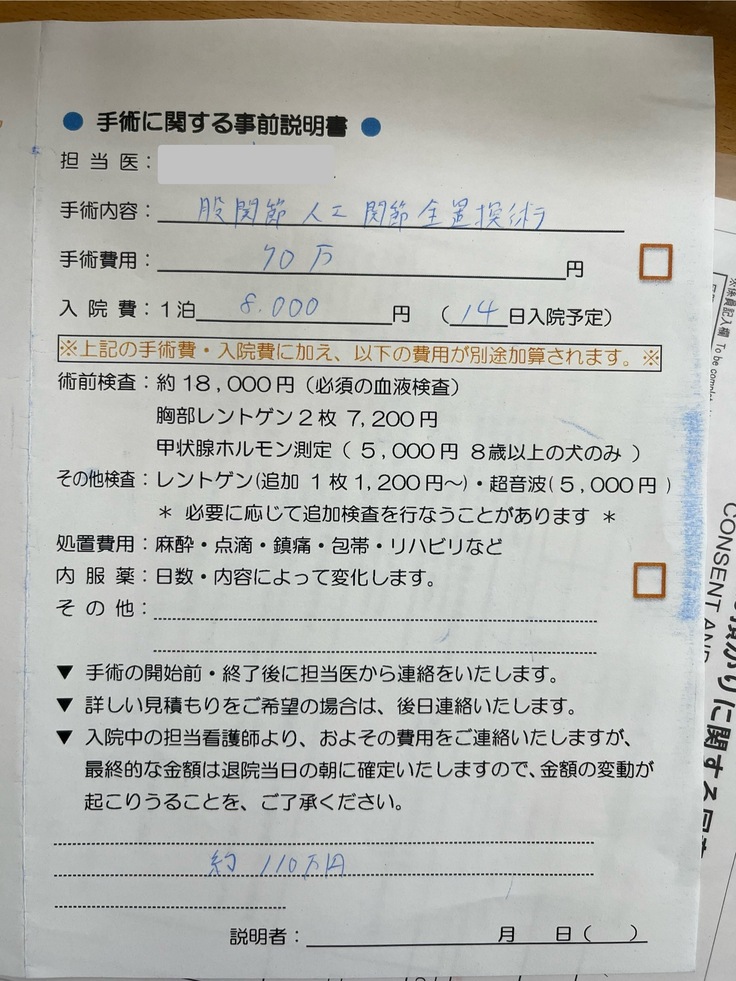 ● 手術に関する事前説明書 ●
担当医：
手術内容： 股関節人工関節全置換術
手術費用： 70万 円
入院費：1泊 8.000 円 （14日入院予定）
※上記の手術費・入院費に加え、以下の費用が別途加算されます。※
術前検査：約18,000円（必須の血液検査）
胸部レントゲン2枚 7,200円
甲状腺ホルモン測定（ 5,000円 8歳以上の犬のみ ）
その他検査：レントゲン(追加 1枚1,200円〜)・超音波(5,000円 )
＊ 必要に応じて追加検査を行なうことがあります ＊
処置費用：麻酔・点滴・鎮痛・包帯・リハビリなど
内服薬：日数・内容によって変化します。
その他：
▼ 手術の開始前・終了後に担当医から連絡をいたします。
▼ 詳しい見積もりをご希望の場合は、後日連絡いたします。
▼ 入院中の担当看護師より、およその費用をご連絡いたしますが、
最終的な金額は退院当日の朝に確定いたしますので、金額の変動が
起こりうることを、ご了承ください。
約 110万円
説明者： 月 日（ ）
※係員記入欄 To be comple
CONSENT AND
預かりに関する同